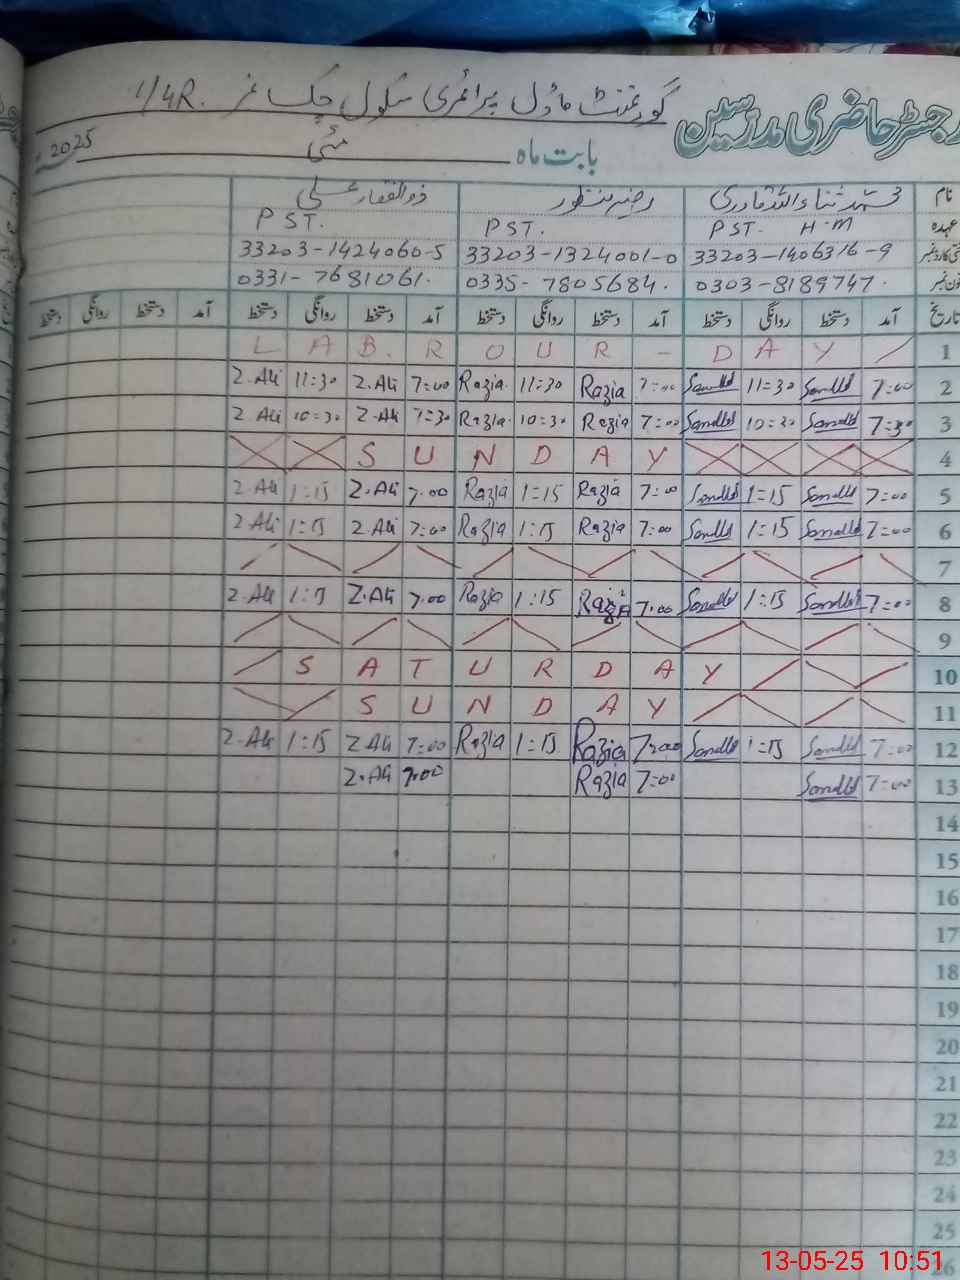 رجسٹر حاضری مدرسین گورنمنٹ ماڈل پرائمری سکول چک نمبر 1/4R.
بابت ماہ مئی 2025
نام محمد ثناء اللہ قادری رضیہ منظور ذوالفقار علی
عہدہ PST. H.M PST. PST.
33203-1406316-9 33203-1324001-0 33203-1424060-5
فون نمبر 0303-8189747. 0335-7805684. 0331-7681061.
تاریخ آمد دستخط روانگی دستخط آمد دستخط روانگی دستخط آمد دستخط روانگی دستخط آمد دستخط روانگی دستخط
L A B. R O U R - D A Y / 1
Z.Ali 11=30 Z.Ali 7=00 Razia. 11=30 Razia 7=00 11=30 7=00 2
Z.Ali 10=30 Z.Ali 7=30 Razia. 10=30 Razia 7=00 10=30 7=30 3
S U N D A Y 4
Z.Ali 1=15 Z.Ali 7.00 Razia 1=15 Razia 7=00 1=15 7=00 5
Z.Ali 1=15 Z.Ali 7=00 Razia 1=15 Razia 7=00 1=15 7=00 6
7
Z.Ali 1=15 Z.Ali 7.00 Razia 1=15 Razia 7.00 1=15 7=00 8
9
S A T U R D A Y 10
S U N D A Y 11
Z.Ali 1=15 Z.Ali 7=00 Razia 1=15 Razia 7=00 1=15 7=00 12
Z.Ali 7.00 Razia 7=00 7=00 13
14
15
16
17
18
19
20
21
22
23
24
25
26
13-05-25 10:51